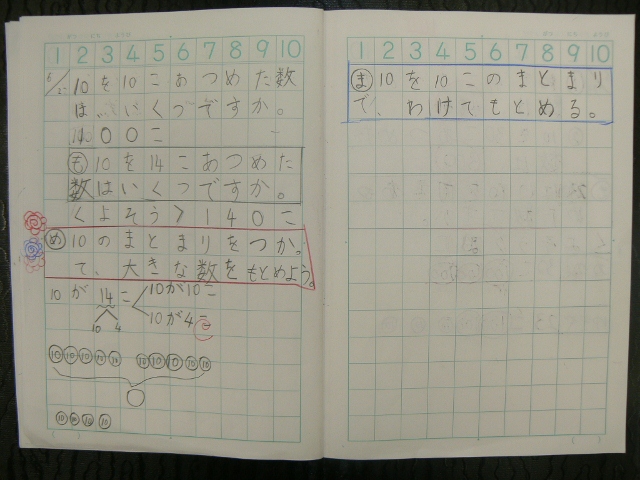 1 2 3 4 5 6 7 8 9 10
10を10こあつめた数
は、いくつですか。
100こ
も 10を14こあつめた
数はいくつですか。
くよそう> 140こ
め 10のまとまりをつか。
て、大きな数をもとめよう。
10が 14こ 10が10こ
10 4 10が4こ
10 10 10 10 10 10 10 10 10 10
10 10 10 10
1 2 3 4 5 6 7 8 9 10
ま 10を10このまとまり
で、わけてもとめる。